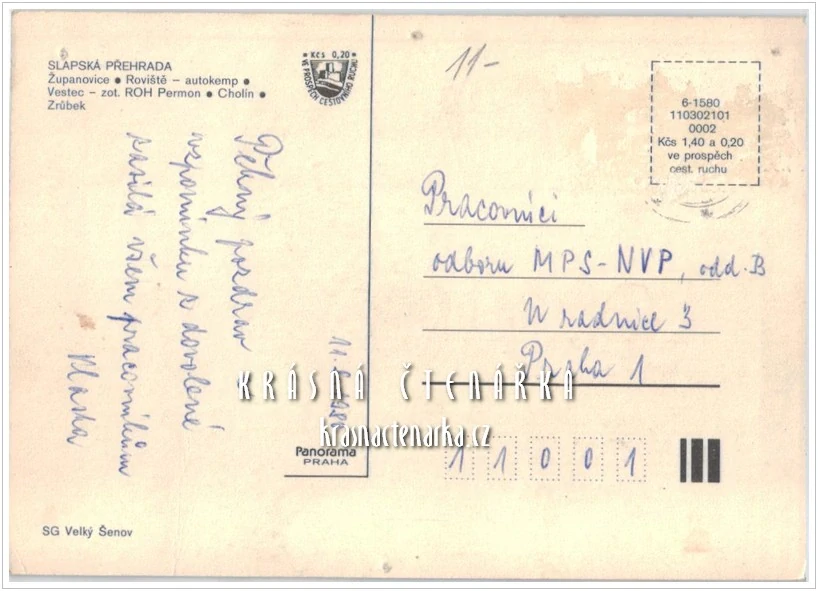 SLAPSKÁ PŘEHRADA
Županovice ● Roviště – autokemp ●
Vestec – zot. ROH Permon ● Cholín ●
Zrůbek
Kčs 0,20
VE PROSPĚCH CESTOVNÍHO RUCHU
11-
6-1580
110302101
0002
Kčs 1,40 a 0,20
ve prospěch
cest. ruchu
Pěkný pozdrav
vzpomínku z dovolené
zasílá všem pracovníkům
Vlasta
Pracovníci
odboru MPS-NVP, odd. B
U radnice 3
Praha 1
KRÁSNÁ ČTENÁŘKA
krasnactenarka.cz
Panorama
PRAHA
11001
SG Velký Šenov